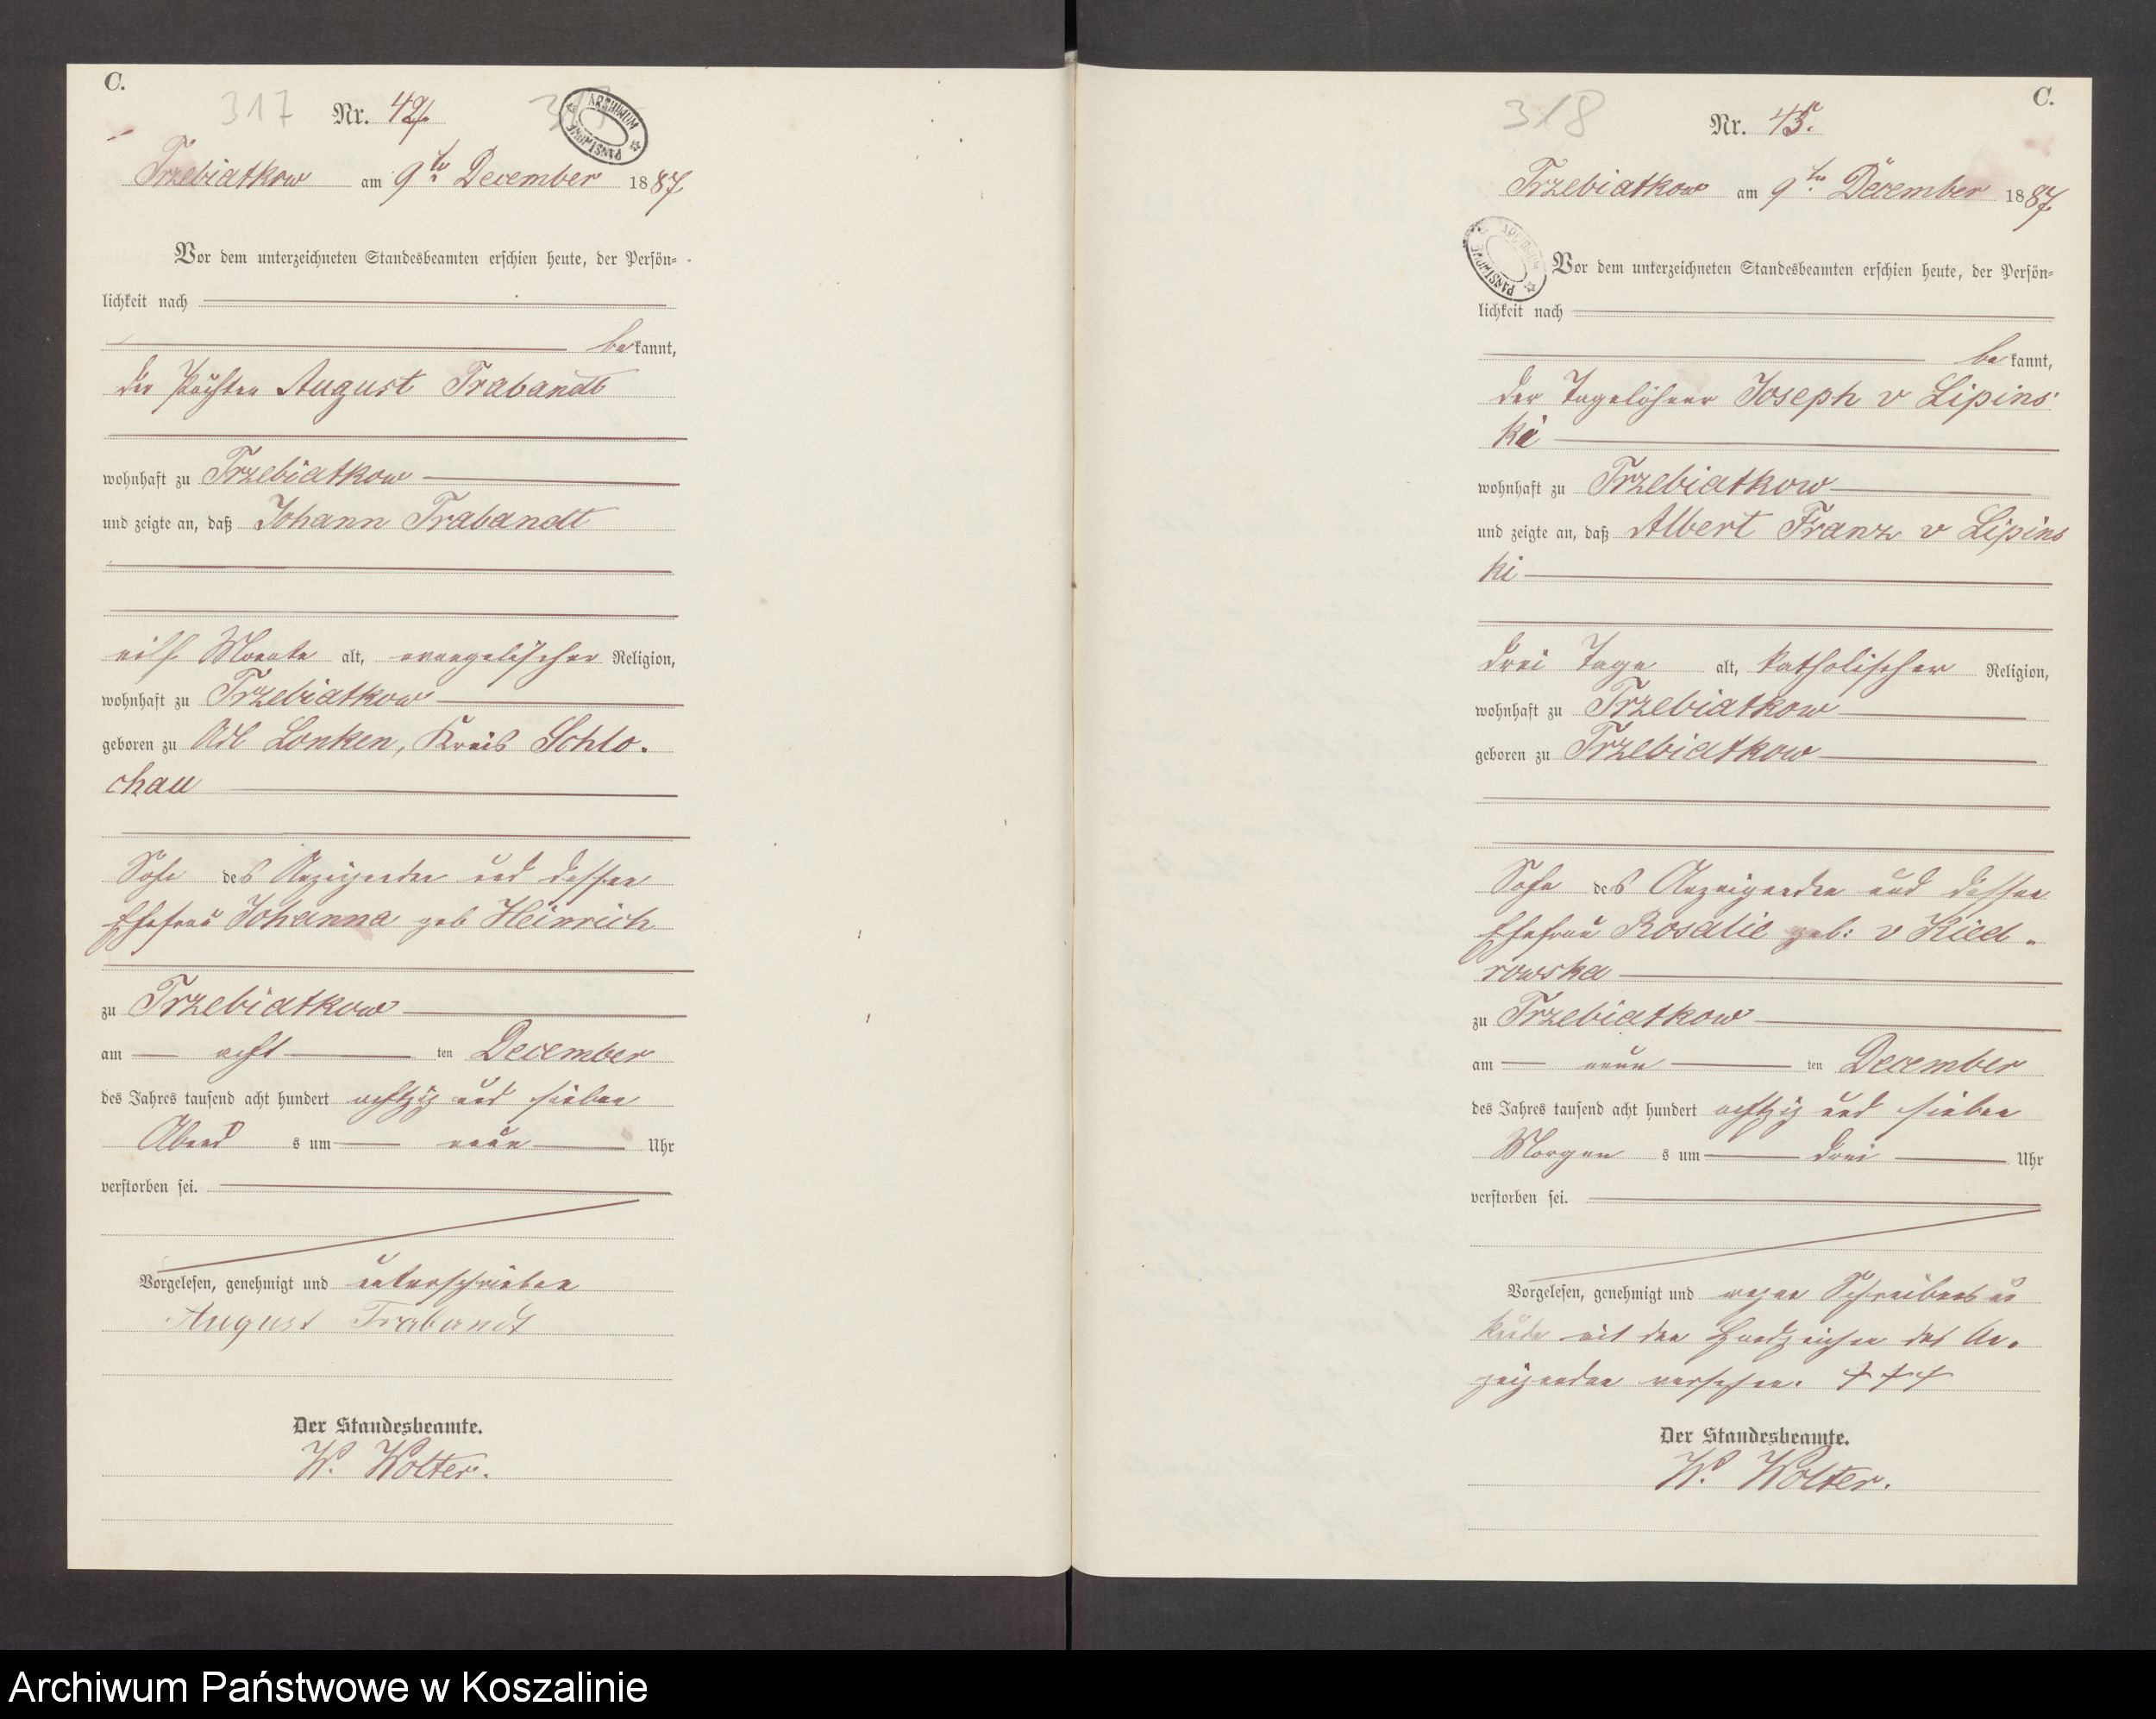 C.
317
Nr. 42.
ARCHIWUM PAŃSTWOWE
Trzebiatkow am 9ten December 1887
Vor dem unterzeichneten Standesbeamten erschien heute, der Persön-
lichkeit nach
bekannt,
der Pächter August Trabandt
wohnhaft zu Trzebiatkow
und zeigte an, daß Johann Trabandt
eilf Monate alt, evangelischer Religion,
wohnhaft zu Trzebiatkow
geboren zu Adl Lonken, Kreis Schlo-
chau
Sohn des Anzeigenden und dessen
Ehefrau Johanna geb Heinrich
zu Trzebiatkow
am acht ten December
des Jahres tausend acht hundert achtzig und sieben
Abend s um neun Uhr
verstorben sei.
Vorgelesen, genehmigt und unterschrieben
August Trabandt
Der Standesbeamte.
W. Wolter.
C.
318
Nr. 43.
Trzebiatkow am 9ten December 1887
ARCHIWUM PAŃSTWOWE
Vor dem unterzeichneten Standesbeamten erschien heute, der Persön-
lichkeit nach
bekannt,
der Tagelöhner Joseph v Lipins-
ki
wohnhaft zu Trzebiatkow
und zeigte an, daß Albert Franz v Lipins
ki
drei Tage alt, katholischer Religion,
wohnhaft zu Trzebiatkow
geboren zu Trzebiatkow
Sohn des Anzeigenden und dessen
Ehefrau Rosalie geb: v Kied-
rowska
zu Trzebiatkow
am neun ten December
des Jahres tausend acht hundert achtzig und sieben
Morgen s um drei Uhr
verstorben sei.
Vorgelesen, genehmigt und wegen Schreibensun
kunde mit den Handzeichen des An-
zeigenden versehen. +++
Der Standesbeamte.
W. Wolter.
Archiwum Państwowe w Koszalinie